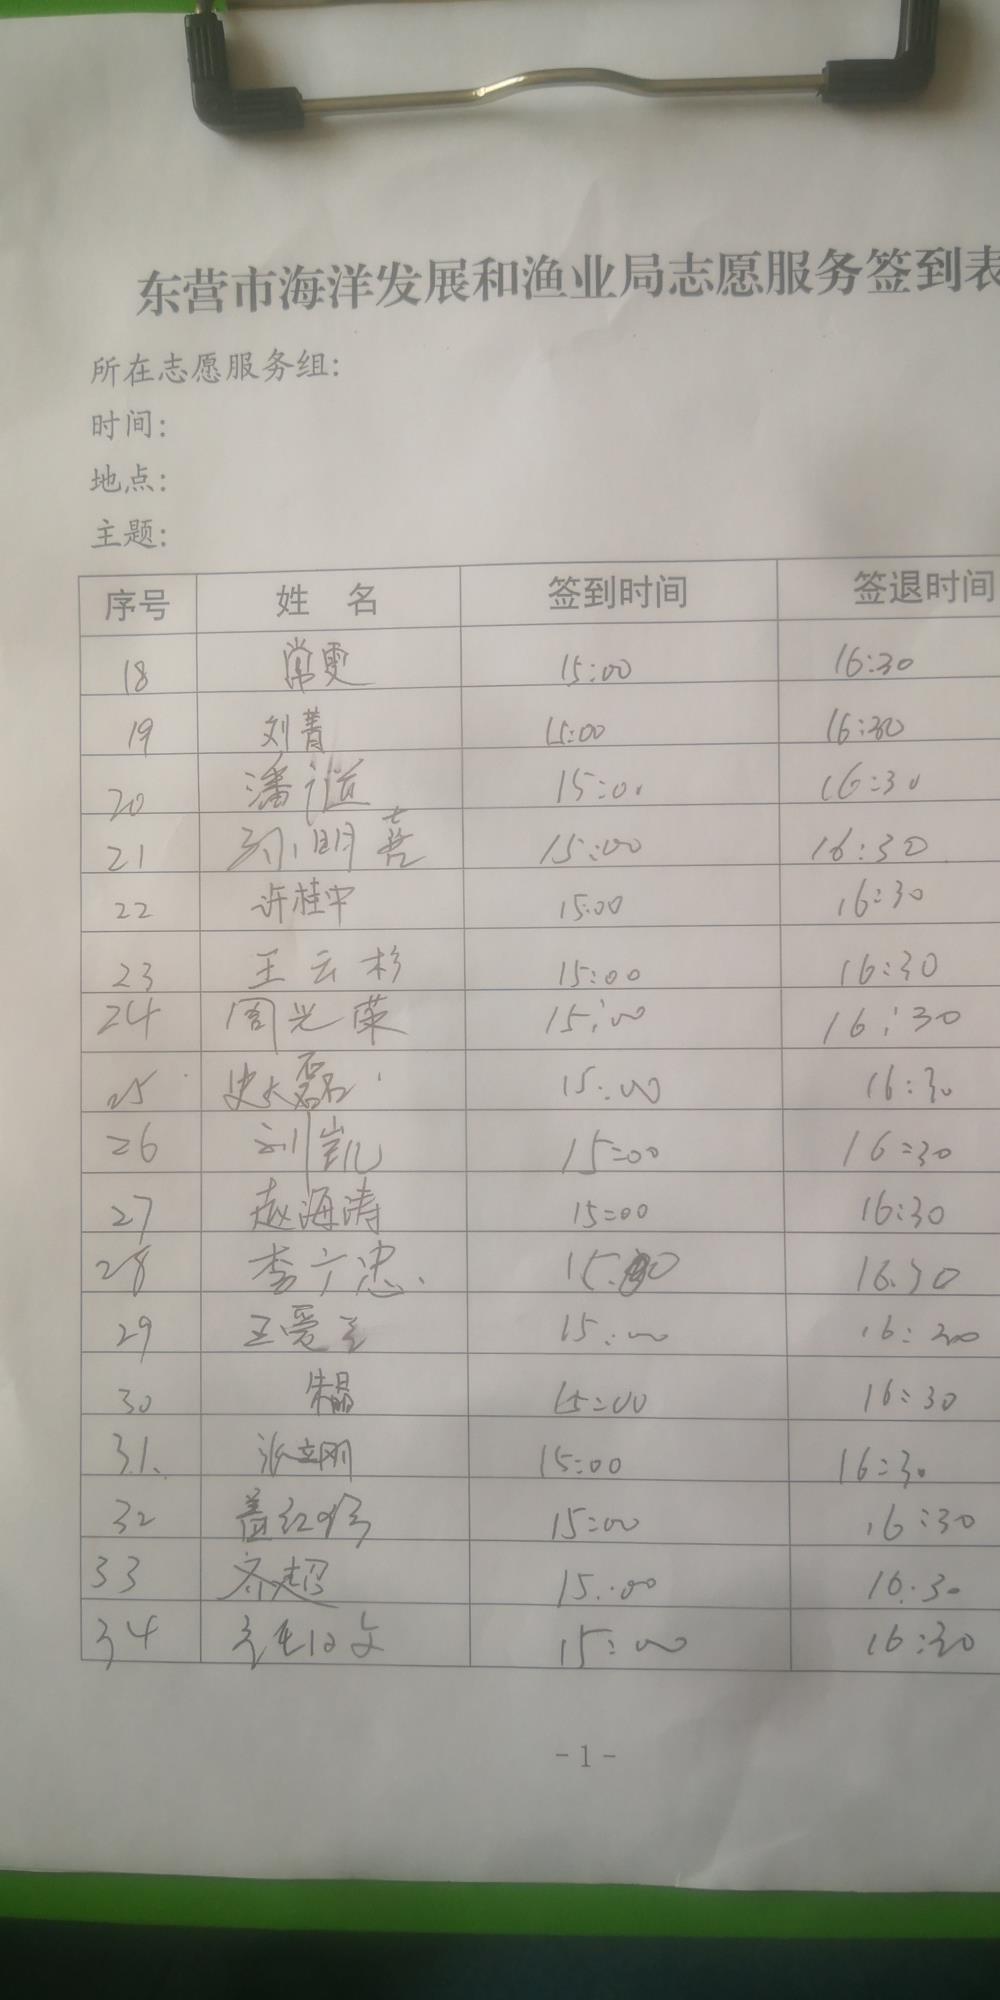 东营市海洋发展和渔业局志愿服务签到表
所在志愿服务组:
时间:
地点:
主题:
序号 姓 名 签到时间 签退时间
18 常雯 15:00 16:30
19 刘菁 15:00 16:30
20 潘 15:00 16:30
21 孙明喜 15:00 16:30
22 许桂中 15:00 16:30
23 王云杉 15:00 16:30
24 周光荣 15:00 16:30
25 史大磊 15:00 16:30
26 刘凯 15:00 16:30
27 赵海涛 15:00 16:30
28 李广忠 15:00 16:30
29 王爱 15:00 16:30
30 朱晶 15:00 16:30
31 张立刚 15:00 16:30
32 15:00 16:30
33 齐超 15:00 16:30
34 15:00 16:30
- 1 -